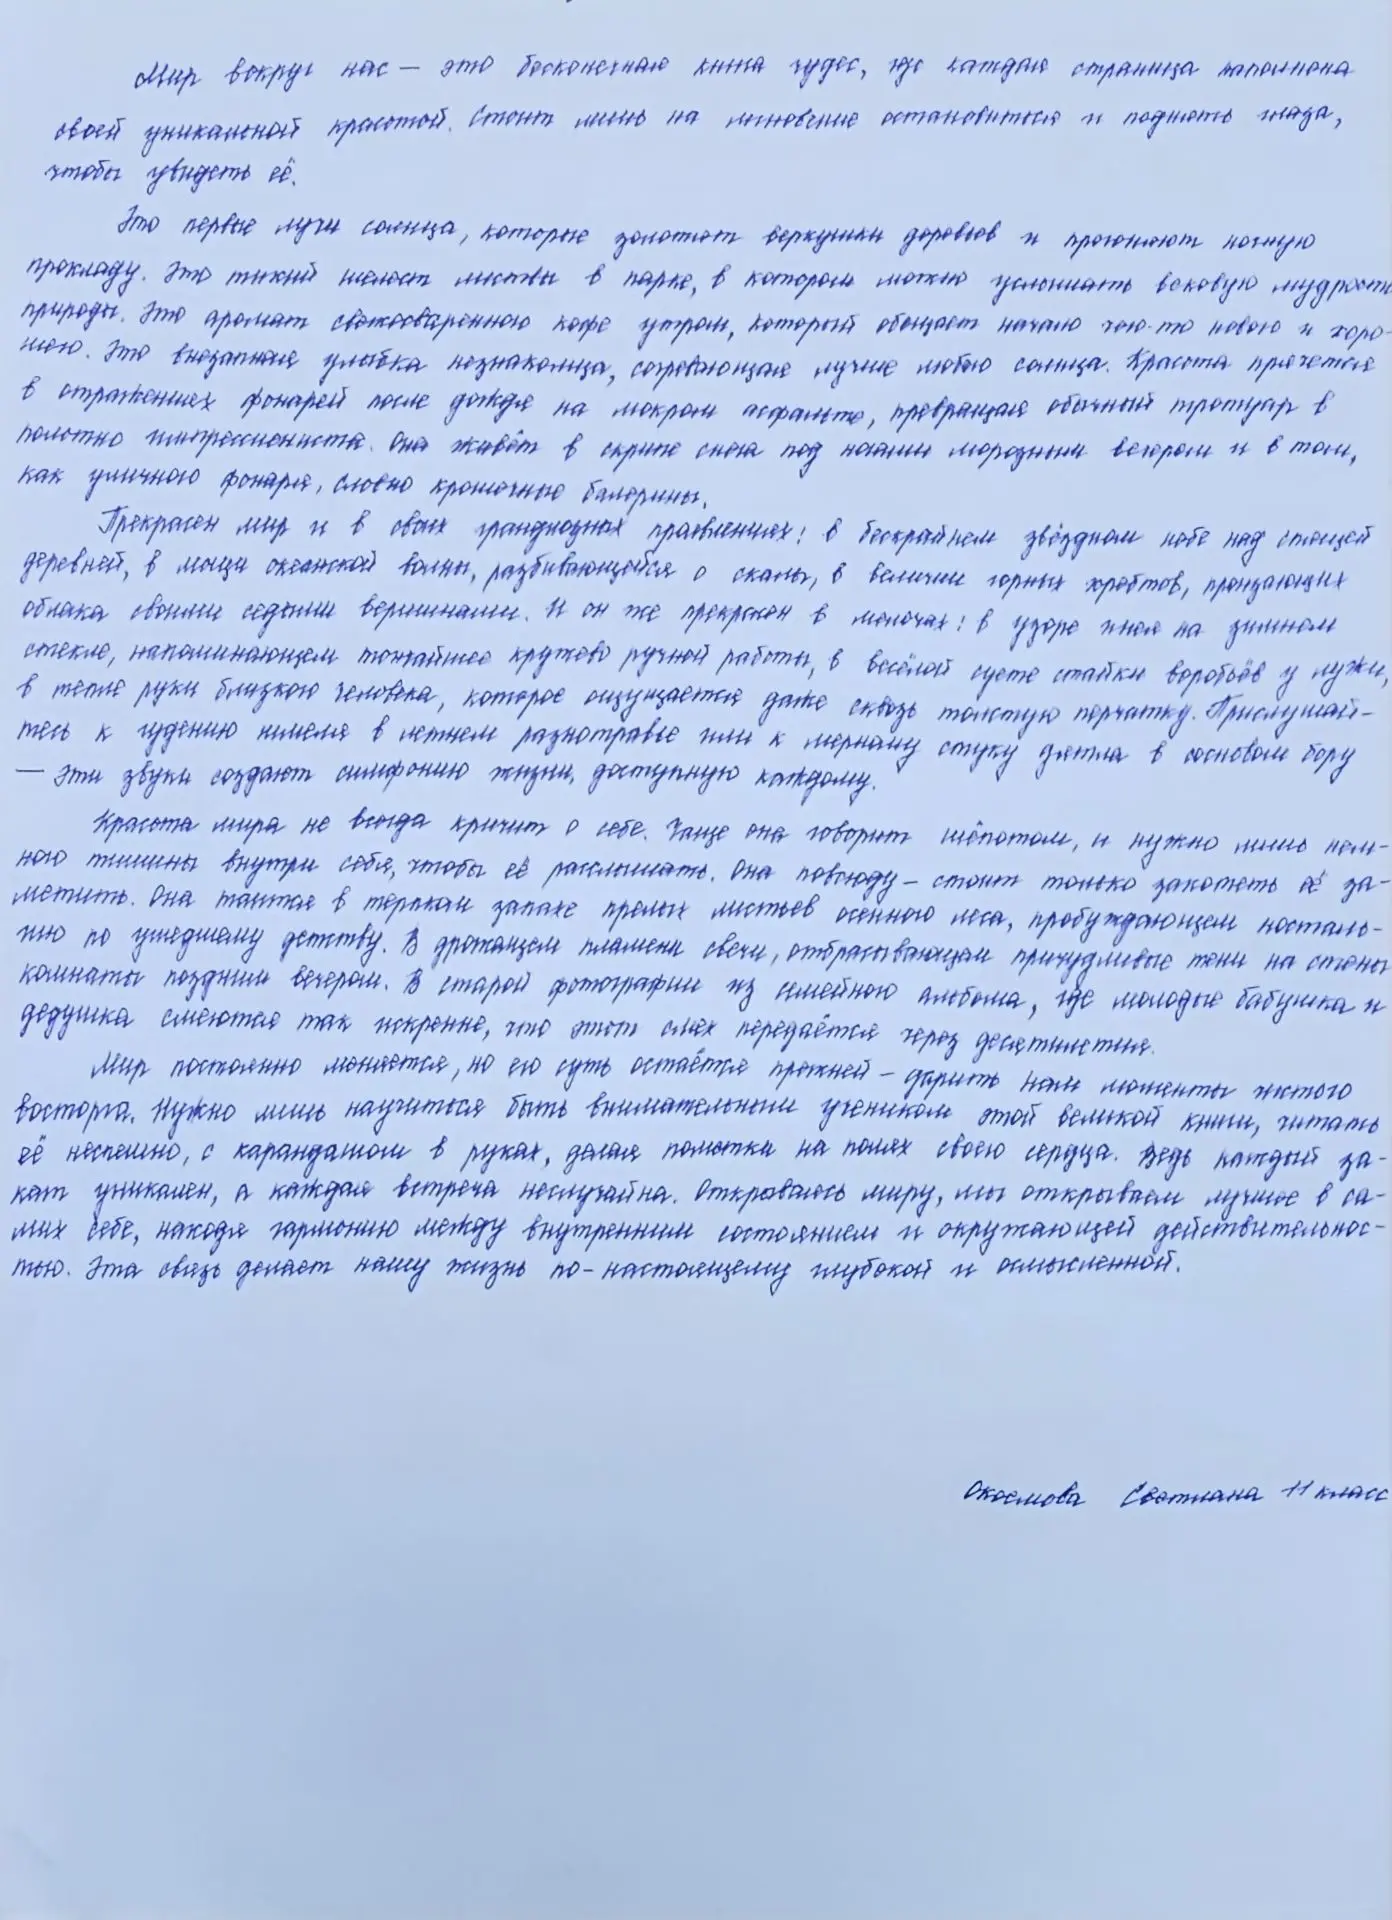 Мир вокруг нас — это бесконечная книга чудес, где каждая страница наполнена
своей уникальной красотой. Стоит лишь на мгновение остановиться и поднять глаза,
чтобы увидеть её.
Это первые лучи солнца, которые золотят верхушки деревьев и прогоняют ночную
прохладу. Это тихий шелест листвы в парке, в котором можно услышать вековую мудрость
природы. Это аромат свежесваренного кофе утром, который обещает начало чего-то нового и хоро-
шего. Это внезапная улыбка незнакомца, согревающая лучше любого солнца. Красота прячется
в отражениях фонарей после дождя на мокром асфальте, превращая обычный тротуар в
полотно импрессиониста. Она живёт в скрипе снега под ногами морозным вечером и в том,
как уличного фонаря, словно крошечные балерины.
Прекрасен мир и в своих грандиозных проявлениях: в бескрайнем звёздном небе над спящей
деревней, в мощи океанской волны, разбивающейся о скалы, в величии горных хребтов, пронзающих
облака своими седыми вершинами. И он же прекрасен в мелочах: в узоре инея на зимнем
стекле, напоминающем тончайшее кружево ручной работы, в весёлой суете стайки воробьёв у лужи,
в тепле руки близкого человека, которое ощущается даже сквозь толстую перчатку. Прислушай-
тесь к гудению шмеля в летнем разнотравье или к мерному стуку дятла в сосновом бору
— эти звуки создают симфонию жизни, доступную каждому.
Красота мира не всегда кричит о себе. Чаще она говорит шёпотом, и нужно лишь нем-
ного тишины внутри себя, чтобы её расслышать. Она повсюду — стоит только захотеть её за-
метить. Она таится в терпком запахе прелых листьев осеннего леса, пробуждающем носталь-
гию по ушедшему детству. В дрожащем пламени свечи, отбрасывающем причудливые тени на стены
комнаты поздним вечером. В старой фотографии из семейного альбома, где молодые бабушка и
дедушка смеются так искренне, что этот смех передаётся через десятилетия.
Мир постоянно меняется, но его суть остаётся прежней — дарить нам моменты чистого
восторга. Нужно лишь научиться быть внимательным учеником этой великой книги, читать
её неспешно, с карандашом в руках, делая пометки на полях своего сердца. Ведь каждый за-
кат уникален, а каждая встреча неслучайна. Открываясь миру, мы открываем лучшее в са-
мих себе, находя гармонию между внутренним состоянием и окружающей действительнос-
тью. Эта связь делает нашу жизнь по-настоящему глубокой и осмысленной.
Окоемова Светлана 11 класс